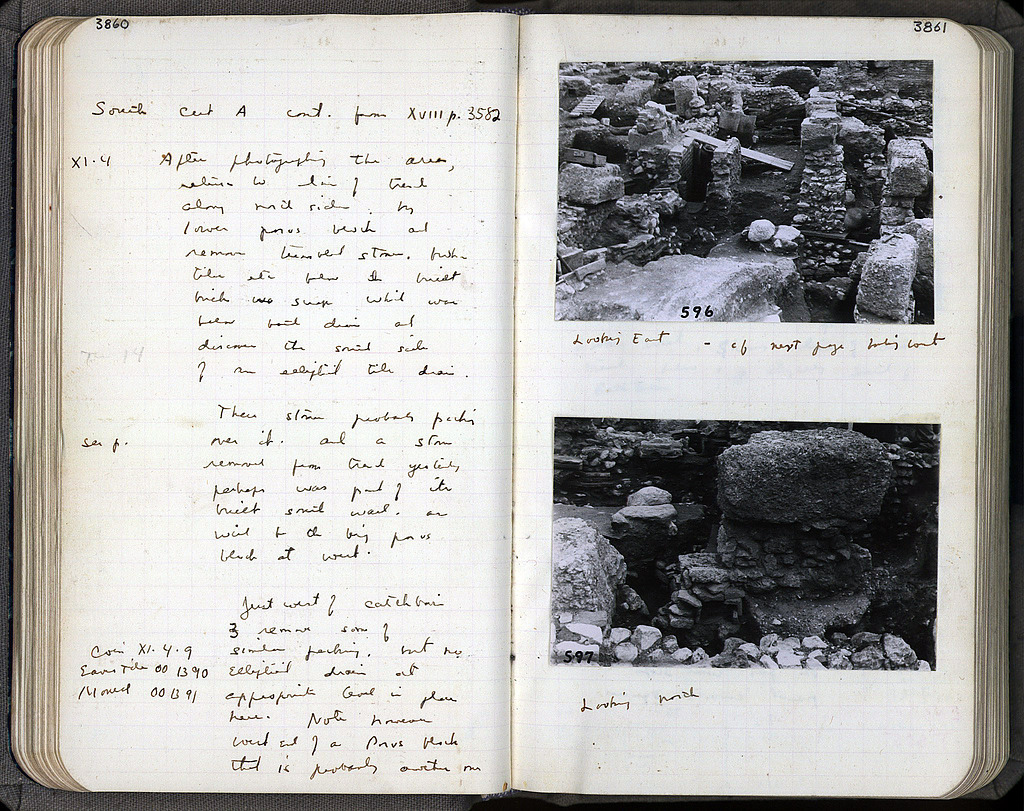 3860
South cut A cont. from XVIII p. 3582
XI.4 After photographing the area,
return to line of trench
along north side. by
lower poros block and
remove tumbled stone, broken
tile etc below the built
brick
below built drain and
discover the south side
of an elliptical tile drain.
These stones probably packing
see p. over it. and a stone
removed from trench yesterday
perhaps was part of its
built south wall. as
well to the big poros
block at west.
Just west of catch basin
3 remove some of
Coin XI.4.9 similar packing, but no
Eaves Tile 00 1390 elliptical drain at
Mould 00 1391 appropriate level in place
here. Note however
west end of a Poros block
that is probably another one
3861
596
Looking East - cf next page looking west
597
Looking north